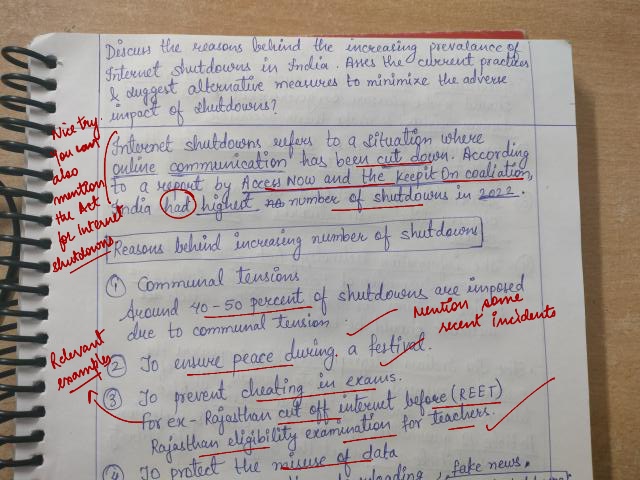 Discuss the reasons behind the increasing prevalance of
Internet shutdowns in India. Asses the current practices
& suggest alternative measures to minimize the adverse
impact of shutdowns?
Nice try.
you can
also
mention
the Act
for internet
shutdowns
Internet shutdowns refers to a situation where
online communication has been cut down. According
to a report by Access Now and the KeepitOn coaliation,
India had highest number of shutdowns in 2022.
Reasons behind increasing number of shutdowns
① Communal tensions
Around 40-50 percent of shutdowns are imposed
due to communal tension.
Mention some
recent incidents
Relevant
examples
② To ensure peace during a festival.
③ To prevent cheating in exams.
For ex- Rajasthan cut off internet before (REET)
Rajasthan eligibility examination for teachers.
④ To protect the misuse of data
fake news.